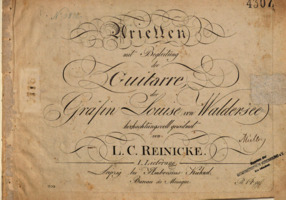 4307
Arietten
mit Begleitung
der
Guitarre,
der
Gräfin Louise von Waldersee
hochachtungsvoll gewidmet
von
L. C. REINICKE.
Leipzig bei Ambrosius Kühnel.
Bureau de Musique.